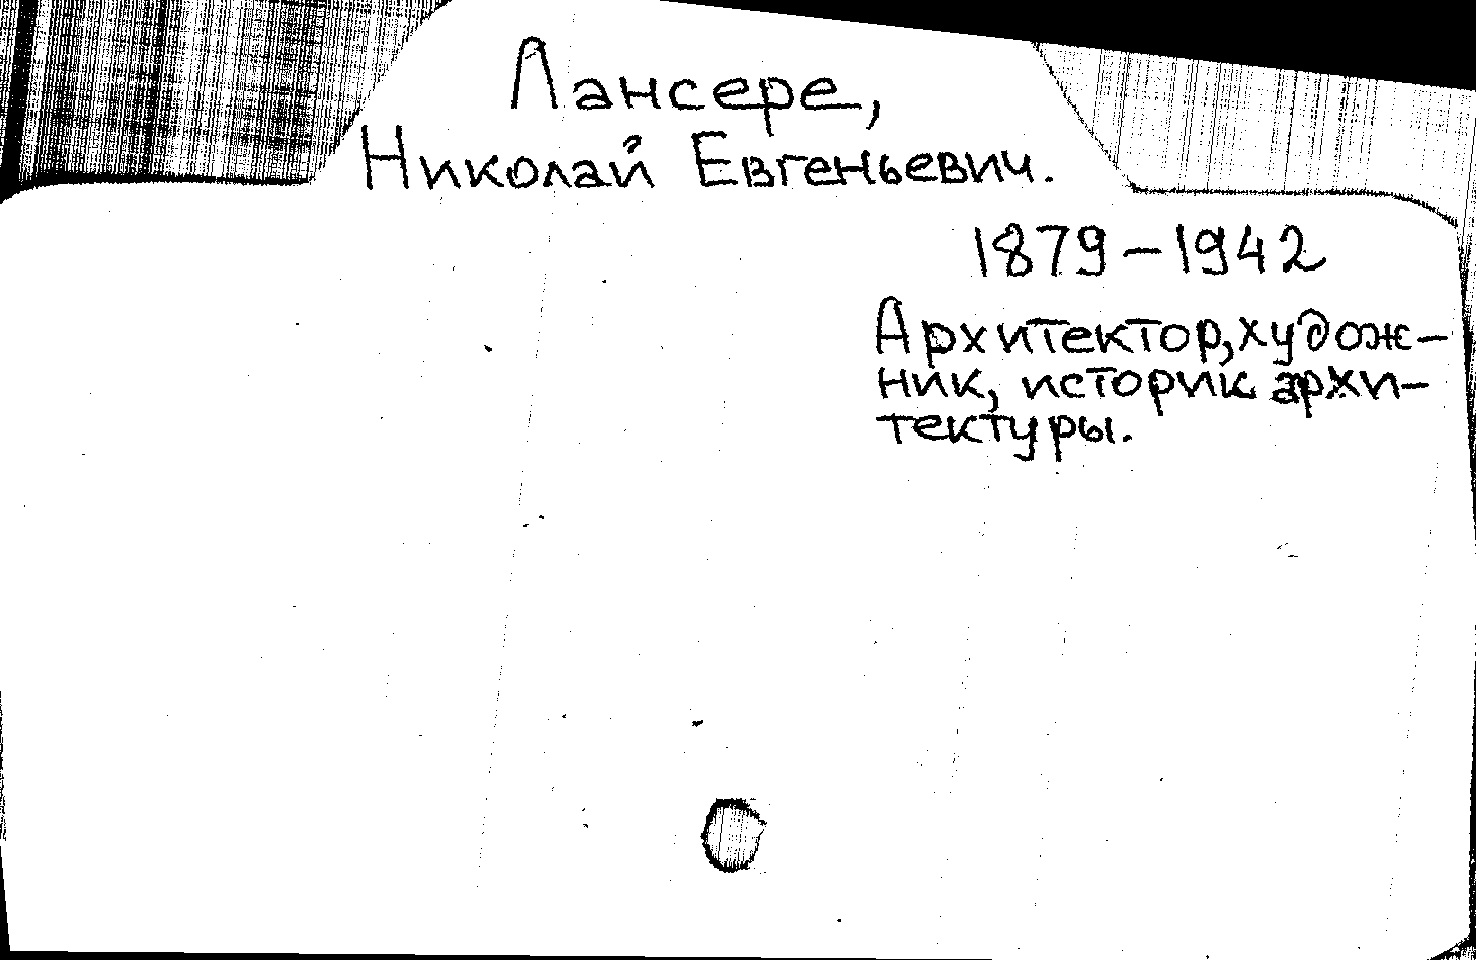 Лансере,
Николай Евгеньевич.
1879-1942
Архитектор, худож-
ник, историк архи-
тектуры.